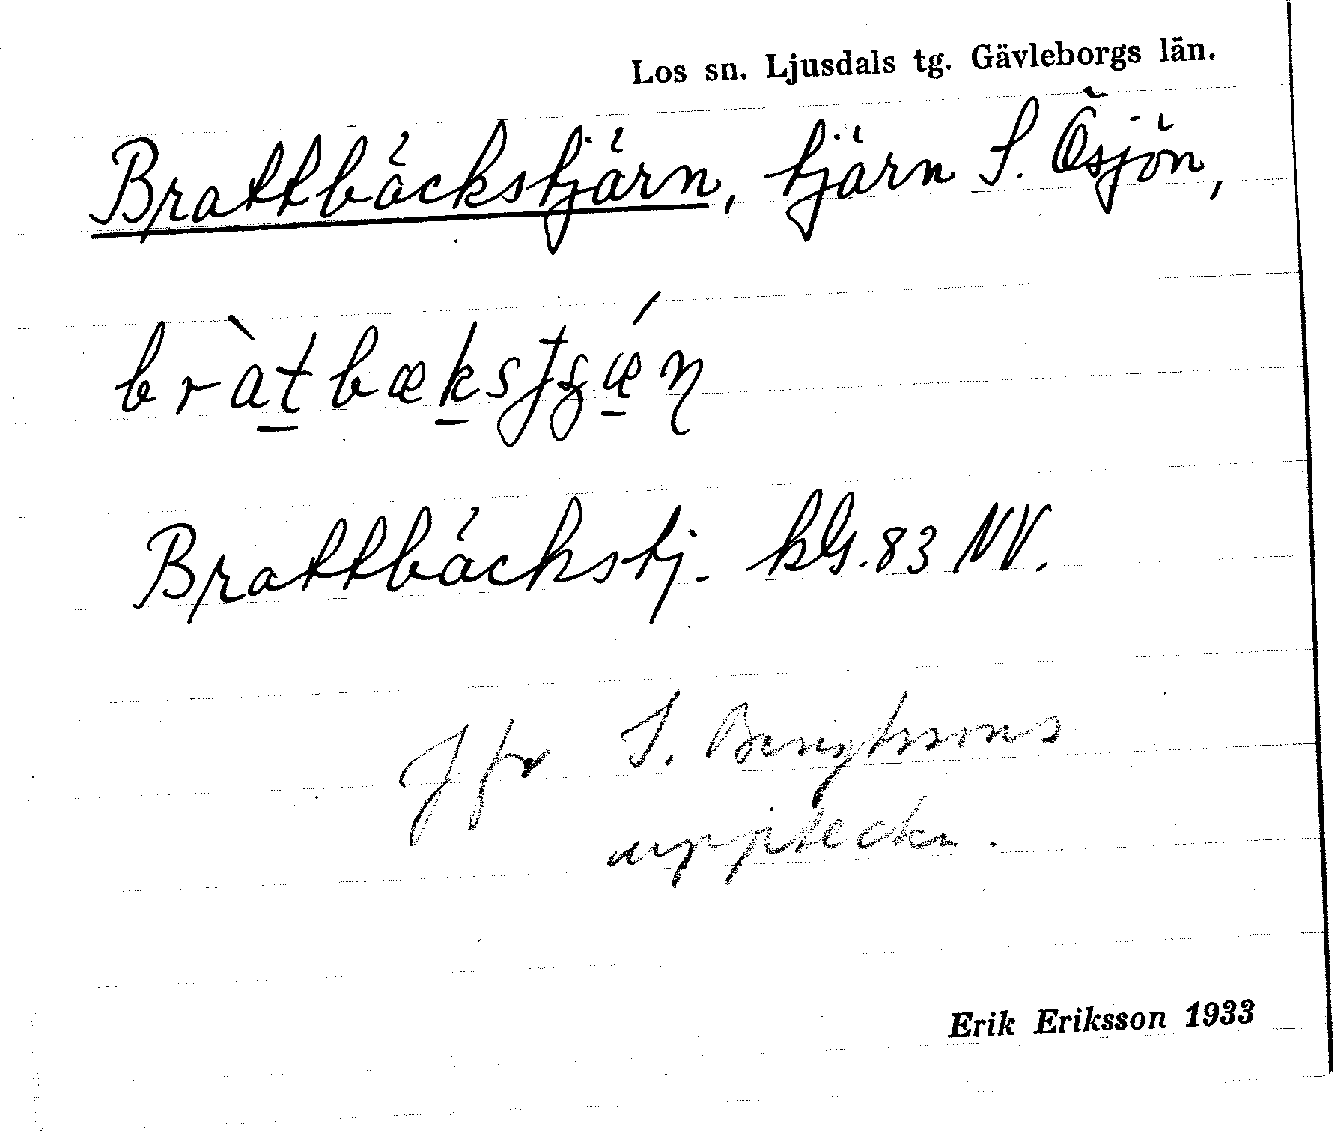 Los sn. Ljusdals tg. Gävleborgs län.
Brattbäckstjärn, tjärn S. Ösjön,
Brattbäckstj. kbl. 83 NV.
Jfr S. Bengtssons
uppteckn.
Erik Eriksson 1933